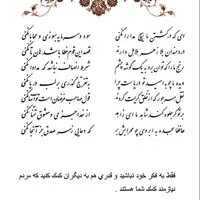 ای که در کشتن ما هیچ مدارا نکنی سود و سرمایه بسوزی و محابا نکنی
دردمندان بلا زهر هلاهل دارند قصد این قوم خطا باشد هان تا نکنی
رنج ما را که توان برد به یک گوشه چشم شرط انصاف نباشد که مداوا نکنی
دیده ما چو به امید تو دریاست چرا به تفرج گذری بر لب دریا نکنی
نقل هر جور که از خلق کریمت کردند قول صاحب غرضان است تو آنها نکنی
بر تو گر جلوه کند شاهد ما ای زاهد از خدا جز می و معشوق تمنا نکنی
حافظا سجده به ابروی چو محرابش بر که دعایی ز سر صدق جز آنجا نکنی
فقط به فکر خود نباشید و قدری هم به دیگران کمک کنید که مردم
نیازمند کمک شما هستند .